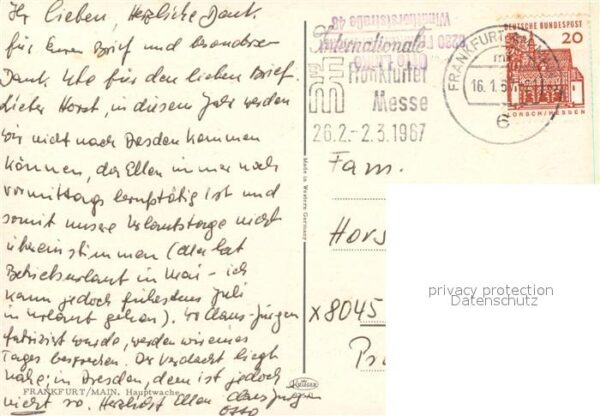 Ihr Lieben, Herzliche Dank.
für Euren Brief und besonderen
Dank Ute für den lieben Brief.
Lieber Horst, in diesem Jahr werden
wir nicht nach Dresden kommen
können, da Ellen immer noch
vormittags berufstätig ist und
somit unsere Urlaubstage nicht
übereinstimmen (Ellen hat
Betriebsurlaub im Mai - ich
kann jedoch frühestens Juli
in Urlaub gehen). Wo Claus-Jürgen
fabriziert wurde, werden wir eines
Tages besprechen. Der Verdacht liegt
nahe; in Dresden, dem ist jedoch
nicht so. Herzlichst Ellen Claus Jürgen
Otto
FRANKFURT/MAIN, Hauptwache
Made in Western Germany
Krüger
Internationale
Frankfurter
Messe
26.2.-2.3.1967
Winthorststraße 45
FRANKFURT
16.1.67
6
DEUTSCHE BUNDESPOST
20
LORSCH/HESSEN
Fam.
Hors
x8045
privacy protection
Datenschutz